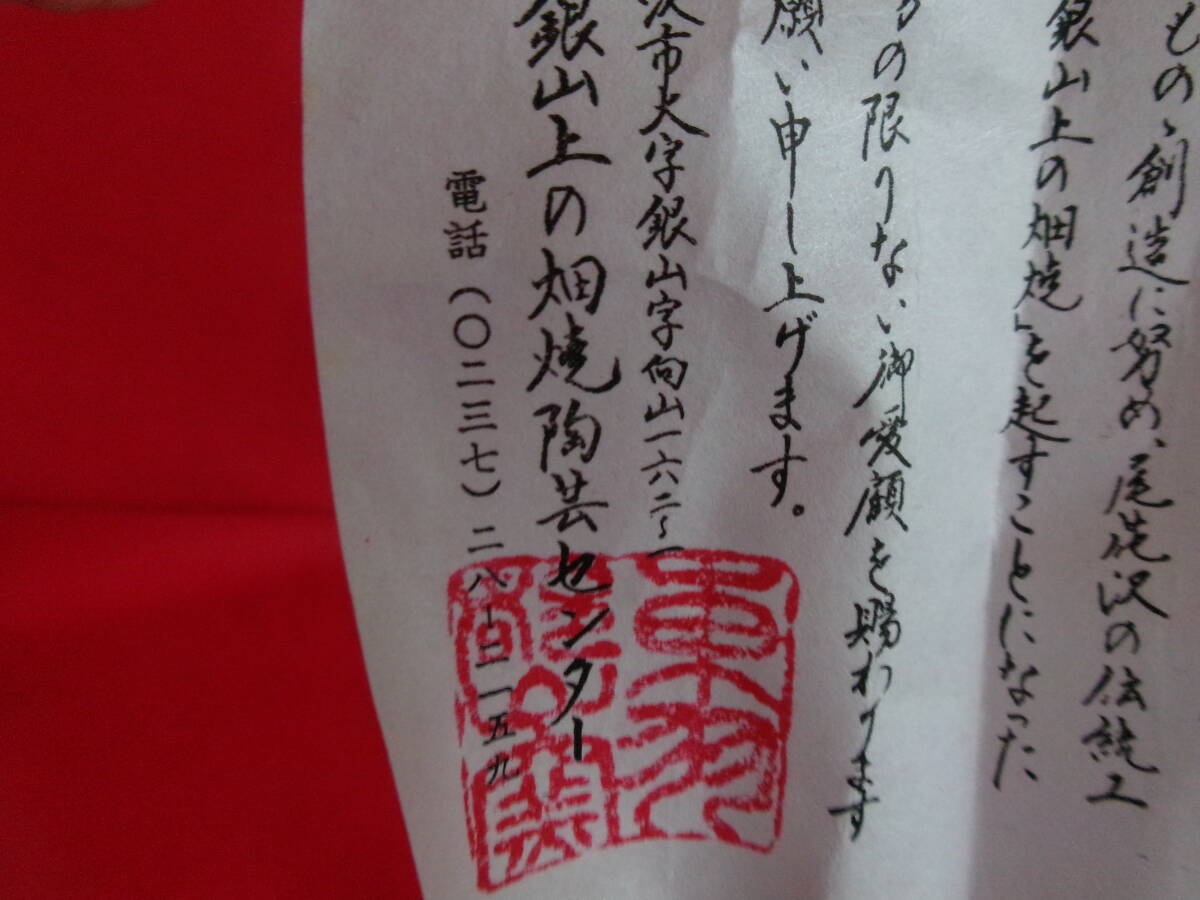 もの、創造に努め、尾花沢の伝統工
銀山上の畑焼」を起すことになった
の限りない御愛顧を賜わります
願い申し上げます。
沢市大字銀山字向山一六二〜一
銀山上の畑焼陶芸センター
電話(〇二三七)二八-二一五九